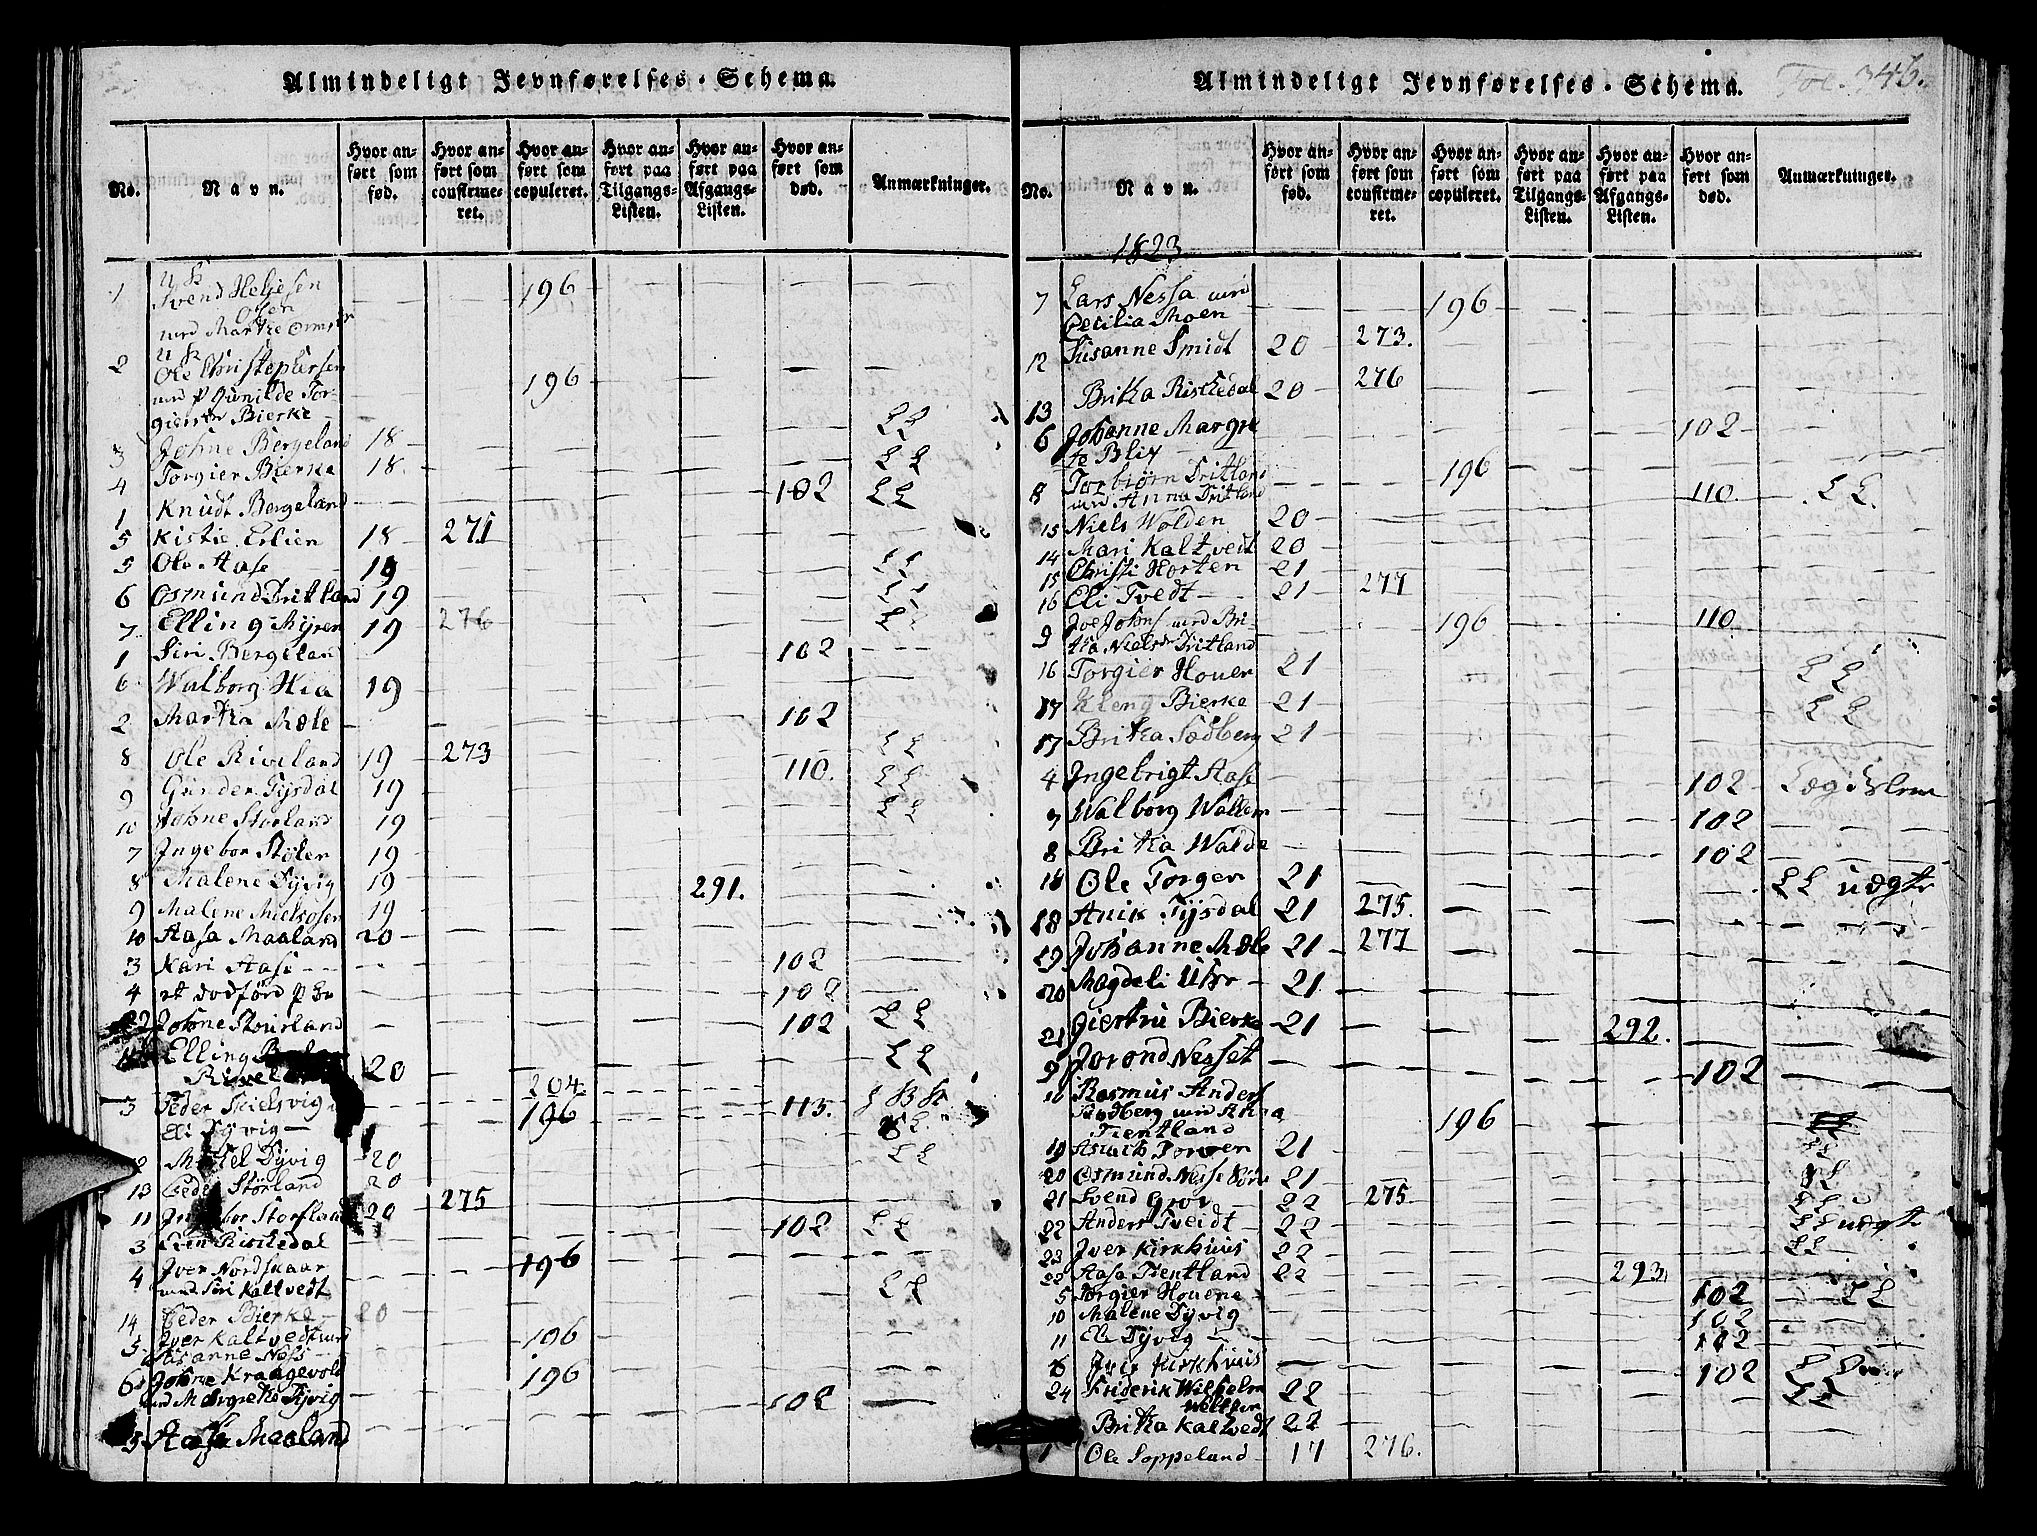 Almindeligt Jevnførelses-Schema.
No.
Navn.
Hvor an-
ført som
fød.
Hvor an-
ført som
confirme-
ret.
Hvor an-
ført som
copuleret.
Hvor an-
ført paa
Tilgangs-
Listen.
Hvor an-
ført paa
Afgangs-
Listen.
Hvor an-
ført som
død.
Anmærkninger.
1 Svend Heljesen 196
Olsen
2 Ole Christophersen
Gunilde Tor- 196
Bierke
3 Johne Bergeland 18 LL
4 Torgier Bierke 18. LL
1 Knudt Bergeland 102 LL
5 Kistie Eslien 18 271
5 Ole Aase 19
6 Osmund Tritland 19
7 Elling Myren 19 276
1 Siri Bergeland 102
6 Walborg Hia 19
2 Martha Mæle 102
8 Ole Riveland 19 273 LL
9 Gunder Tysdal 19 110. LL
10 Johne Storland 19 LL
7 Ingebor Stølen 19
8 Malene Dyvig 19 291.
9 Malene 19
10 Aasa Maaland 20
3 Kari Aase 102
4 et dødførd 102
Johne Stourland 102 LL
Elling
Rivela 20 LL
3 Peder Skielsvig 204
Eli Dyvig 196 113.
Dyvig 20 LL
13 Peder Størland 20
11 Storfland 20 275
3 Riskedal 102 LL
4 Iver Nordskaar 196
Siri Kaltvedt
14 Peder Bierke 20 LL
5 Iver Kaltvedt
Susanne Ness 196
6 Johne Kraagevold 196
Margrethe Dyvig
5 Aasa Maaland 102
Almindeligt Jevnførelses-Schema.
Fol. 346.
No.
Navn.
Hvor an-
ført som
fød.
Hvor an-
ført som
confirme-
ret.
Hvor an-
ført som
copuleret.
Hvor an-
ført paa
Tilgangs-
Listen.
Hvor an-
ført paa
Afgangs-
Listen.
Hvor an-
ført som
død.
Anmærkninger.
1823
7 Lars Nessa 196
Cecilia Moen
12 Susanne Smidt 20 273.
13 Britha Riskedal 20 276
6 Johanne Margre
te Blix 102
8 Torbiørn Tritland 196
Anna Tritland 110 LL.
15 Niels Wolden 20
14 Mari Kaltvedt 20
15 Christi Horten 21
16 Eli Tvedt 21 277
9 Bri- 196 110
tha Tritland
16 Torgier Houen 21 LL
17 Kleng Bierke 21 LL
17 Britha Sødberg 21
4 Ingebrigt Aase 102
7 Walborg 102
8 Britha Walde 102
18 Ole Torgen 21 LL udgt
18 Anik Tysdal 21 275.
19 Johanne Mæle 21 277
20 Magdeli 21
21 Giertru Bierke 21 292.
9 Jorond Nesset 102
10 Rasmus Anders
Sødberg Anna 196
Tientland
19 21
20 Osmund 21 LL
21 Svend Grov 22 275. LL
22 Anders Tveidt 22 LL udgt
23 Iver Kirkhuus 22 LL
22 Aasa Tientland 22 293
5 Torgier Houene 102 LL
10 Malene Dyvig 102
11 Eli Dyvig 102
6 Iver Kirkhuus 102 L
24 Friderik Wilhelm 22 LL
Britha Kaltvedt 22
1 Ole Soppeland 17 276.